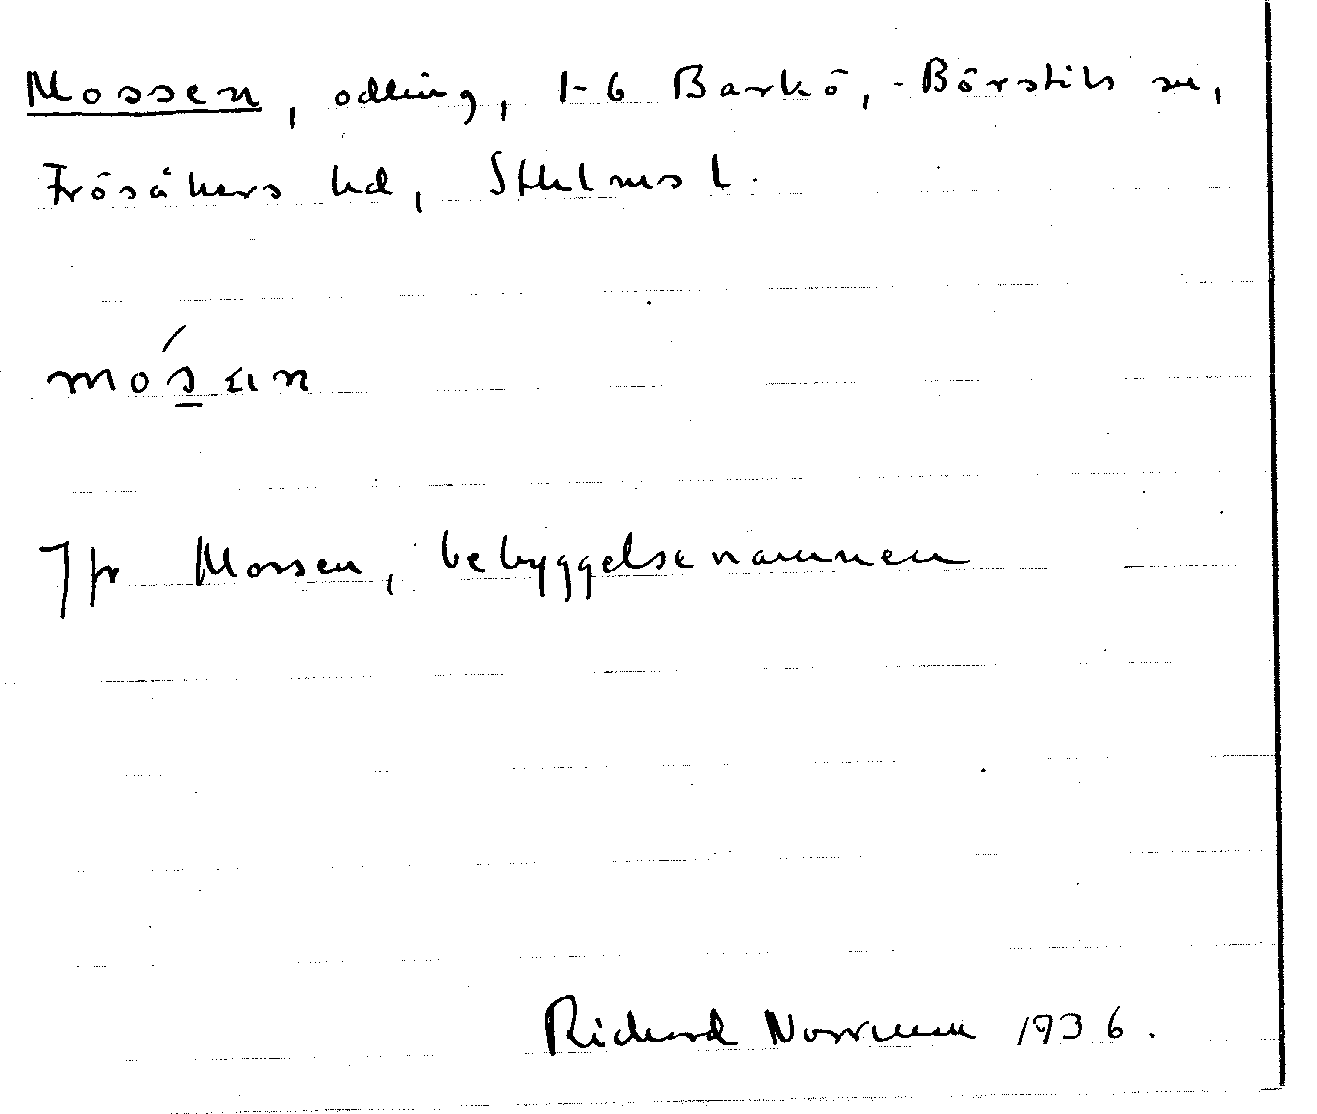 Mossen, odling, 1-6 Barkö, Börstils sn,
Frösåkers hd, Sthlms l.
mósan
Jfr Mossen, bebyggelsenamnen
Richard Norrman 1936.